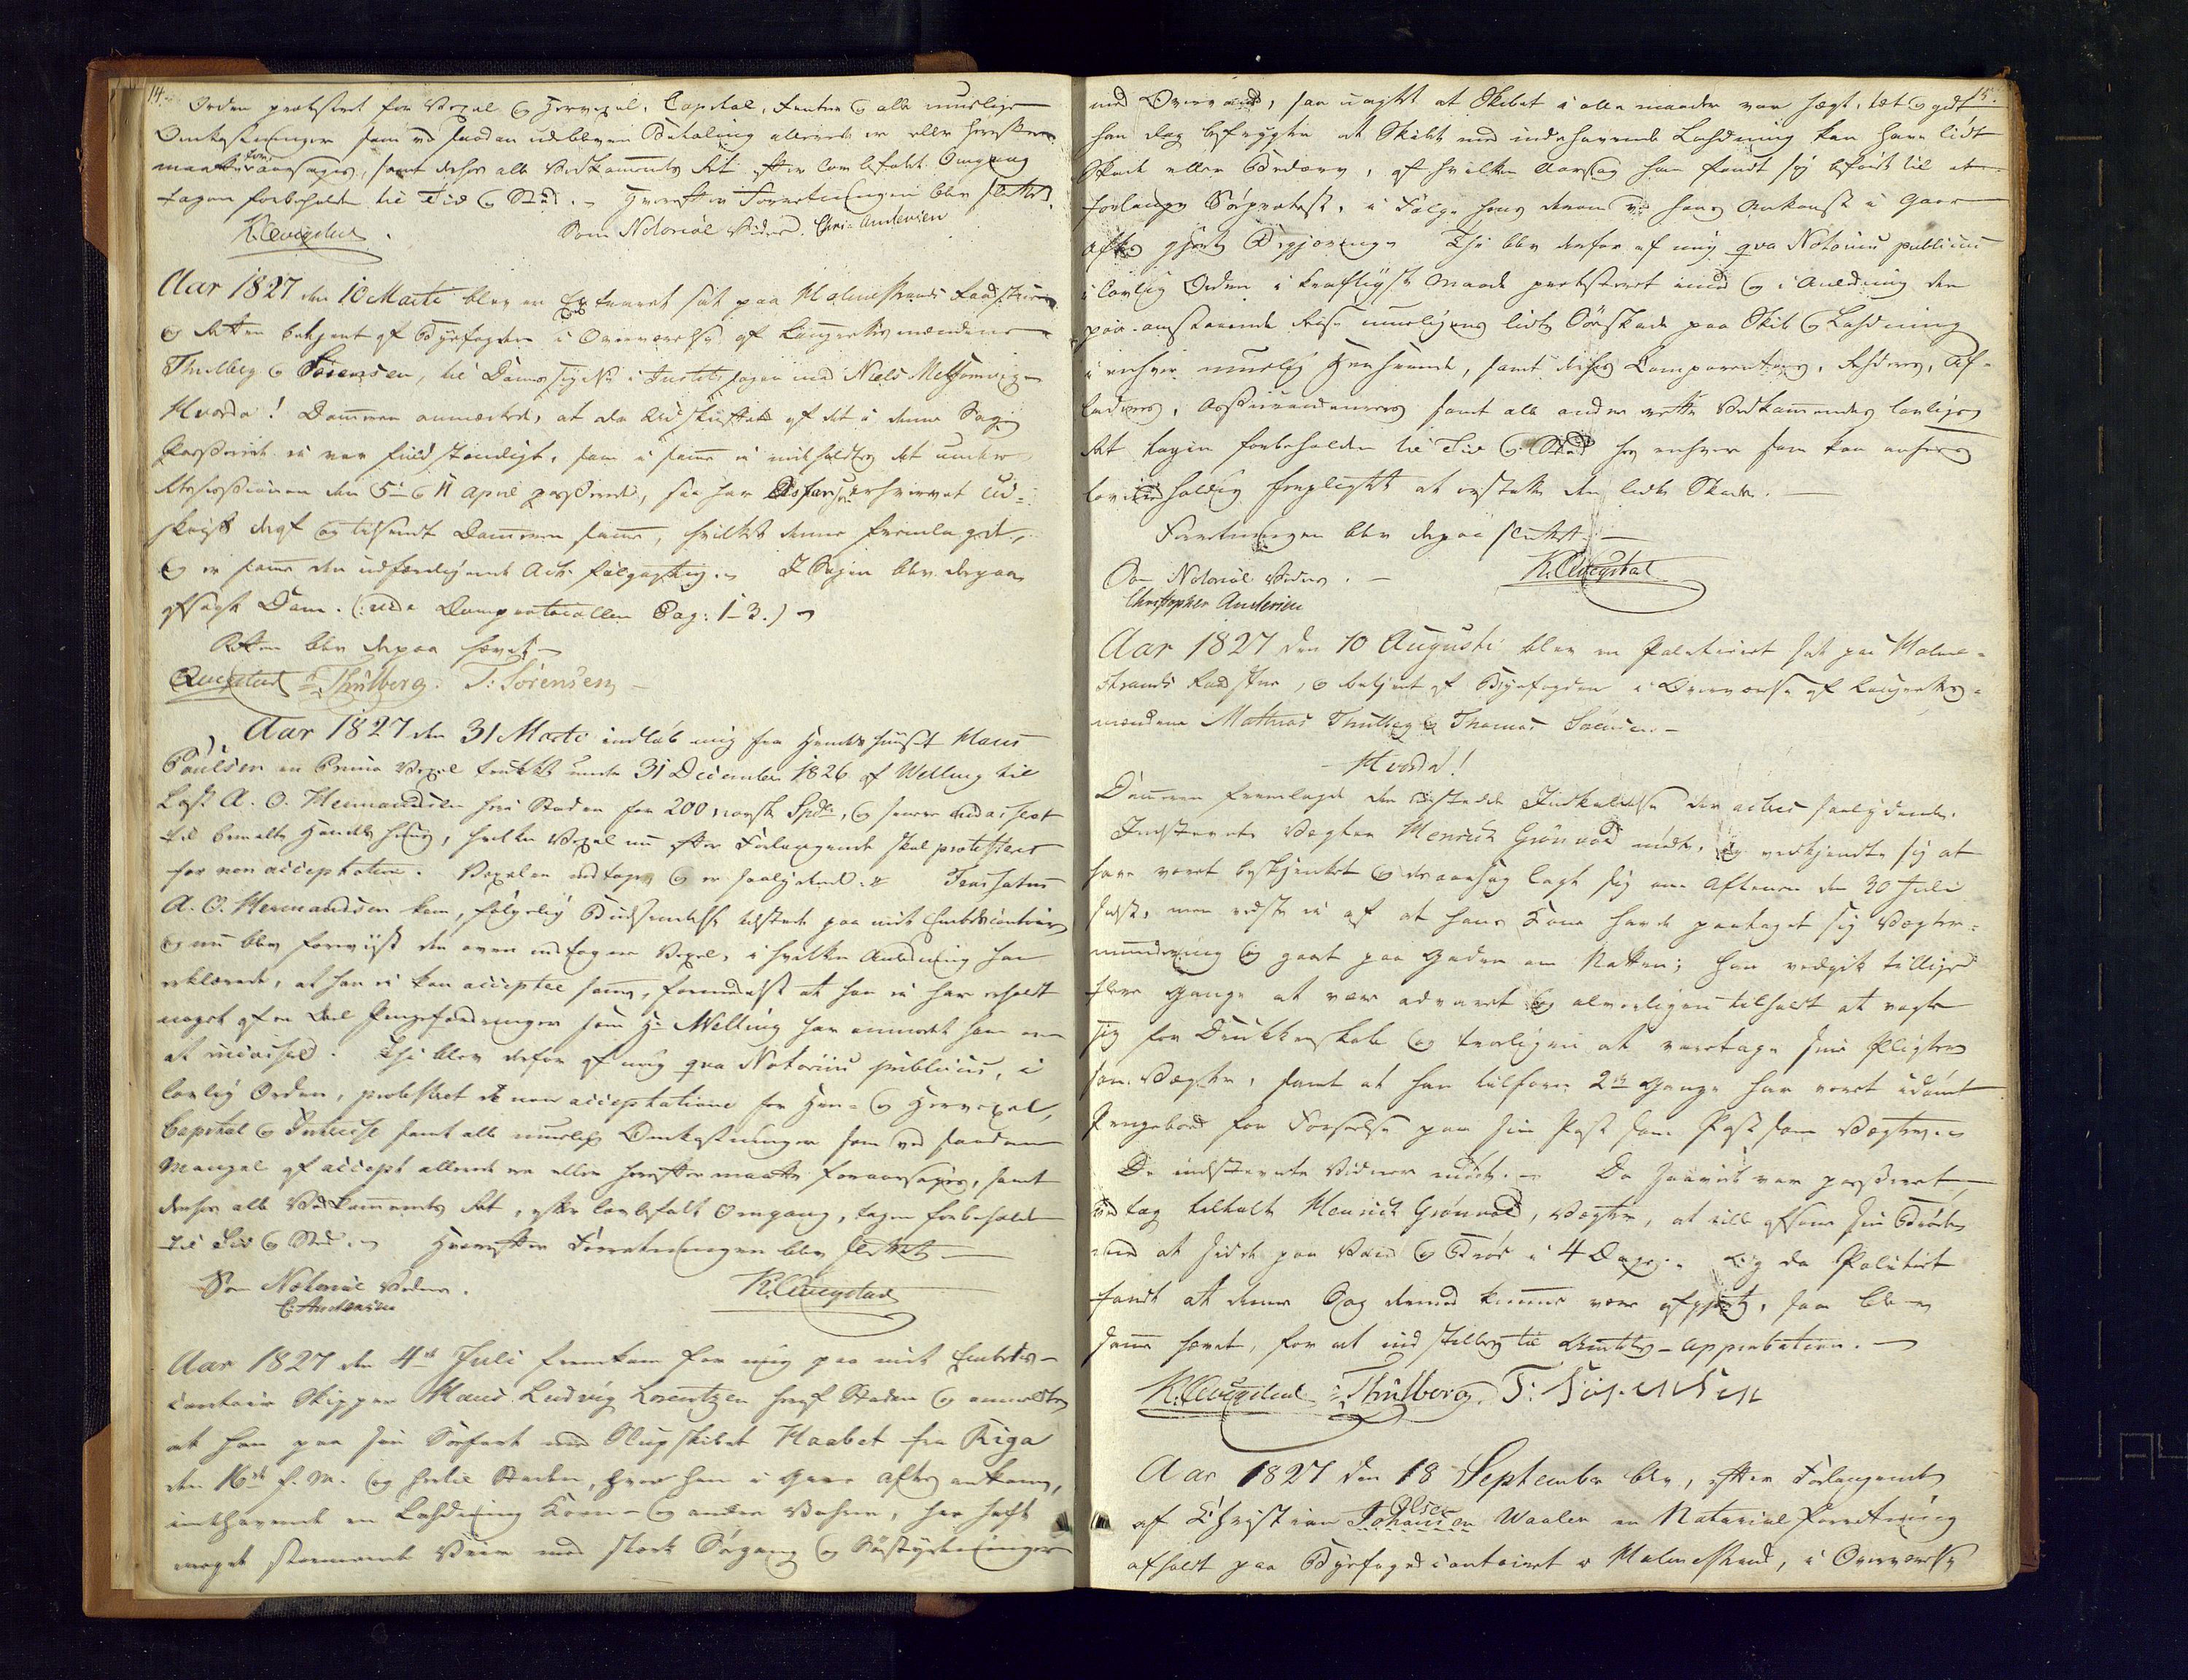 14.
Orden protesteret for Vexel og Hervexel, Capital, Renter og alle muelige
Omkostninger som ved saadan udebleven Betaling allerede er eller herefter
maatte foraarsages, samt derhos alle Vedkommendes Ret efter lovbefalt Omgang
tagen forbeholden til Tid og Sted. - Hvorefter Forretningen blev sluttet.
Som Notorial Vidne. Chri: Andersen
Aar 1827 den 10 Marti blev en Extraret sat paa Holmestrands Raadstue
og Retten betjent af Byefogden i Overværelse af Laugrettesmændene
Thulberg og Sørensen, til Doms Sigelse i Justitssagen mod Niels
Hvorda! Dommeren anmærkede, at da Udskriften af det i denne Sag
Passerede ei var fuldstændigt, som i samme ei indholdtes det under
den 5te og 11 April passerede, saa har
skrift deraf og tilsendt Dommeren samme, hvilket denne fremlagde,
og er samme den udfærdigende Act følgagtig. I Sagen blev derpaa
afsagt Dom. (: vide Domprotocollen Pag: 1-3.)
Retten blev derpaa hævet
Thulberg. T: Sørensen
Aar 1827 den 31 Marti indløb mig fra Handelshuuset Hans
Poulsen en Prima Vexel trukket under 31 December 1826 af Welling til
Last A. O. Hermandsen her i Staden for 200 norske Spdlr, og senere endosseret
til bemeldte Handelshuus, hvilken Vexel nu efter Forlangende skal protesteres
for non acceptation. Vexelen indtages og er saalydende. Trassatus
A. O. Hermandsen kom, følgelig Budsendelse tilstede paa mit Embedscontoir
og nu blev foreviist den oven indtagne Vexel, i hvilken Anledning han
erklærede, at han ei kan acceptere samme, formedelst at han ei har erholdt
noget af en Deel Pengefordringer som Hr Welling har anmodet ham om
at incassere. Thi blev derfor af mig qva Notarius publicus, i
lovlig Orden, protesteret de non acceptatione for Hen- og Hervexel,
Capital og Interesse samt alle muelige Omkostninger som ved saadan
Mangel af accept allerede er eller herefter maatte foraarsages, samt
derhos alle Vedkommendes Ret, efter lovbefalt Omgang, tagen forbeholden
til Tid og Sted. Hvorefter Forretningen blev sluttet
Som Notorial Vidne.
C: Andersen
Aar 1827 den 4de Juli fremkom for mig paa mit Embeds-
contoir Skipper Hans Ludvig Lorentzen her af Staden og anmeldte
at han paa sin Søefart med Slupskibet Haabet fra Riga
den 16de f. M. og hertil Staden, hvor han i Gaar Aftes ankom,
indhavende en Ladning Korn- og andre Vahre, har havt
meget stormende Veir med stærk Søegang og Søestyrtninger
15.
med Overvand, saa uagtet at Skibet i alle maader var tægt, tæt og godt
han dog befrygter at Skibet med indehavende Ladning kan have lidt
Skade eller Bedærv, af hvilken Aarsag han fandt sig beføiet til at
forlange Søeprotest, i Følge hans derom ved hans Ankomst i Gaar
Aftes gjorte Begjering. Thi blev derfor af mig qva Notarius publicus
i lovlig Orden i kraftigste Maade protesteret imod og i Anledning den
paa omstaaende Reise mueligens lidte Søeskade paa Skib og Ladning
i enhver muelig Henseende, samt derhos Comparentens, Rhederes, Af-
laderes, Assuradeurers samt alle andre rette Vedkommendes lovlige
Ret tagen forbeholden til Tid og Sted hos enhver som kan ansees
lovmedholdig forpligtet at erstatte den lidte Skade.
Forretningen blev derpaa sluttet
Som Notorial Vidne.
Christopher Andersen
Aar 1827 den 10 Augusti blev en Politieret sat paa Holme-
strands Raadstue, og betjent af Byefogden i Overværelse af Laugrettes-
mændene Mathias Thulberg og Thomas Sørensen
Hvorda!
Dommeren fremlagde den udstedte Indkaldelse der acteres saalydende.
Indstevnte Vægter Henrich Grønvold mødte, og vedkjendte sig at
have været beskjenket og desaarsag lagt sig om Aftenen den 30 Juli
sidst, men vidste ei af at hans Kone havde paataget sig Vægter-
mundering og gaaet paa Gaden om Natten; han vedgik tillige
flere Gange at være advaret og alvorligen tilholdt at vogte
sig for Drukkenskab og troligen at varetage sine Pligter
som Vægter, samt at han tilforn 2de Gange har været idømt
Pengebod for Forseelse paa sin Post som Post som Vægter.
De indstevnte Vidner mødte. - Da saavidt var passeret,
tilholdt Henrich Grønvold, Vægter, at ville afsone sin Brøde
med at sidde paa Vand og Brød i 4 Dage. - Og da Politiret
fandt at denne Sag dermed kunne være afgjort, saa blev
samme hævet, for at indstilles til Amtets-Approbation.
Thulberg. T: Sørensen
Aar 1827 den 18 September blev, efter Forlangende
af Christian Johansen Olsen Waaler en Notarial Forretning
afholdt paa Byefogedcontoiret i Holmestrand, i Overværelse